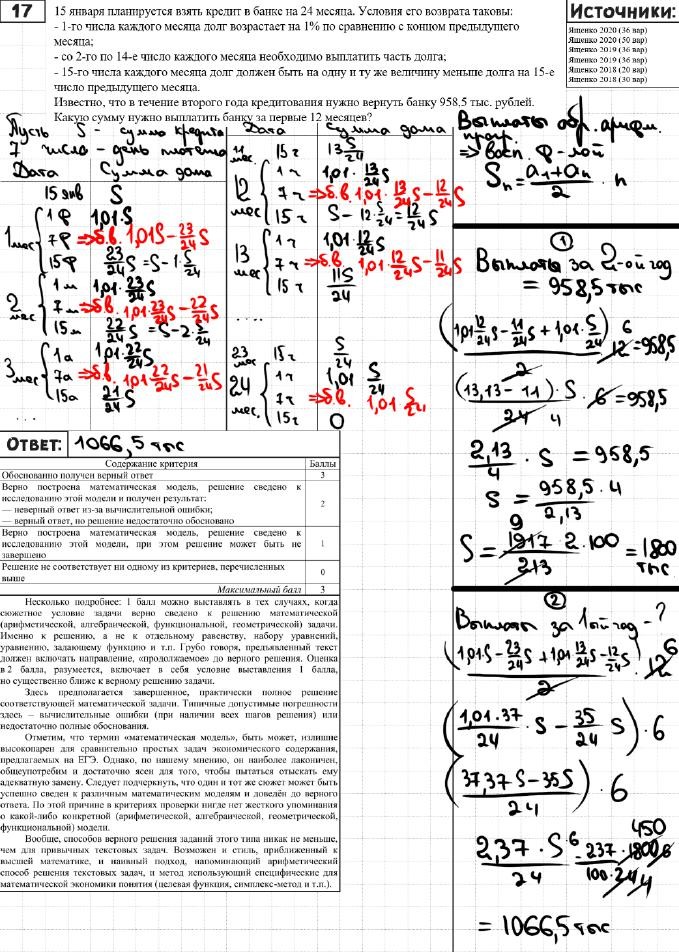 17
15 января планируется взять кредит в банке на 24 месяца. Условия его возврата таковы:
- 1-го числа каждого месяца долг возрастает на 1% по сравнению с концом предыдущего
месяца;
- со 2-го по 14-е число каждого месяца необходимо выплатить часть долга;
- 15-го числа каждого месяца долг должен быть на одну и ту же величину меньше долга на 15-е
число предыдущего месяца.
Известно, что в течение второго года кредитования нужно вернуть банку 958,5 тыс. рублей.
Какую сумму нужно выплатить банку за первые 12 месяцев?
Источники:
Ященко 2020 (36 вар)
Ященко 2020 (50 вар)
Ященко 2019 (36 вар)
Ященко 2019 (36 вар)
Ященко 2018 (20 вар)
Ященко 2018 (30 вар)
Пусть S - сумма кредита
7 число - день платежа
Дата Сумма долга
15 янв S
1 мес
1 ф 1,01·S
7ф ⇒ б.в. 1,01S - 23/24 S
15ф 23/24 S = S - 1·S/24
2 мес
1 м 1,01·23/24 S
7м ⇒ б.в. 1,01·23/24 S - 22/24 S
15м 22/24 S = S - 2·S/24
3 мес
1а 1,01·22/24 S
7а ⇒ б.в. 1,01·22/24 S - 21/24 S
15а 21/24 S
...
Дата Сумма долга
11 мес 15ч 13S/24
12 мес
1ч 1,01·13/24 S
7ч ⇒ б.в. 1,01·13/24 S - 12/24 S
15ч S - 12·S/24 = 12/24 S
13 мес
1ч 1,01·12/24 S
7ч ⇒ б.в. 1,01·12/24 S - 11/24 S
15ч 11S/24
....
23 мес 15ч S/24
24 мес
1ч 1,01 S/24
7ч ⇒ б.в. 1,01·S/24
15ч 0
Выплаты обр. арифм.
прогр.
⇒ восп. ф-лой
Sn = (a1 + an)/2 · n
1
Выплаты за 2-ой год
= 958,5 тыс
(1,01·12/24 S - 11/24 S + 1,01·S/24)/2 · 12 6 = 958,5
(13,13 - 11)·S/24 4 · 6 = 958,5
2,13/4 · S = 958,5
S = 958,5·4/2,13
S = 9 1917·2·100/213 = 1800 тыс
2
Выплаты за 1ый год - ?
(1,01S - 23/24 S + 1,01·13/24 S - 12/24 S)/2 · 12 6
(1,01·37/24 · S - 35/24 S) · 6
(37,37S - 35S)/24 · 6
2,37·S·6/24 = 237·1800·6/100·24 450 4
= 1066,5 тыс
ОТВЕТ: 1066,5 тыс
Содержание критерия Баллы
Обоснованно получен верный ответ 3
Верно построена математическая модель, решение сведено к
исследованию этой модели и получен результат:
— неверный ответ из-за вычислительной ошибки;
— верный ответ, но решение недостаточно обосновано 2
Верно построена математическая модель, решение сведено к
исследованию этой модели, при этом решение может быть не
завершено 1
Решение не соответствует ни одному из критериев, перечисленных
выше 0
Максимальный балл 3
Несколько подробнее: 1 балл можно выставлять в тех случаях, когда
сюжетное условие задачи верно сведено к решению математической
(арифметической, алгебраической, функциональной, геометрической) задачи.
Именно к решению, а не к отдельному равенству, набору уравнений,
уравнению, задающему функцию и т.п. Грубо говоря, предъявленный текст
должен включать направление, «продолжаемое» до верного решения. Оценка
в 2 балла, разумеется, включает в себя условие выставления 1 балла,
но существенно ближе к верному решению задачи.
Здесь предполагается завершенное, практически полное решение
соответствующей математической задачи. Типичные допустимые погрешности
здесь – вычислительные ошибки (при наличии всех шагов решения) или
недостаточно полные обоснования.
Отметим, что термин «математическая модель», быть может, излишне
высокопарен для сравнительно простых задач экономического содержания,
предлагаемых на ЕГЭ. Однако, по нашему мнению, он наиболее лаконичен,
общеупотребим и достаточно ясен для того, чтобы пытаться отыскать ему
адекватную замену. Следует подчеркнуть, что один и тот же сюжет может быть
успешно сведен к различным математическим моделям и доведён до верного
ответа. По этой причине в критериях проверки нигде нет жесткого упоминания
о какой-либо конкретной (арифметической, алгебраической, геометрической,
функциональной) модели.
Вообще, способов верного решения заданий этого типа никак не меньше,
чем для привычных текстовых задач. Возможен и стиль, приближенный к
высшей математике, и наивный подход, напоминающий арифметический
способ решения текстовых задач, и метод использующий специфические для
математической экономики понятия (целевая функция, симплекс-метод и т.п.).